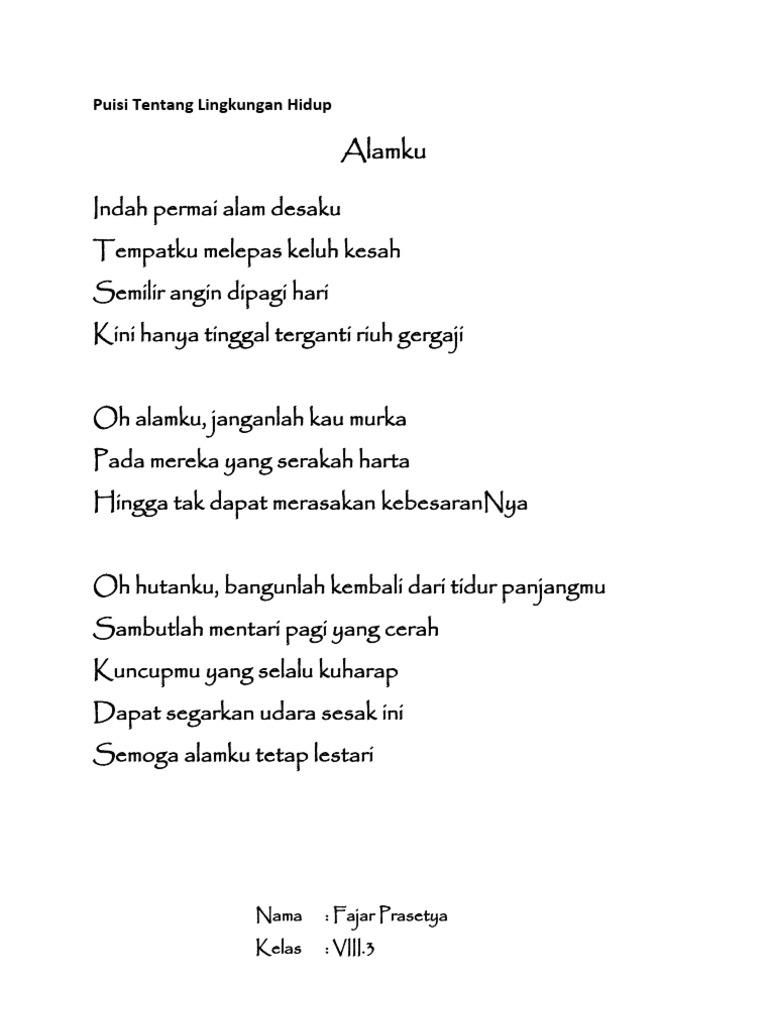 Puisi Tentang Lingkungan Hidup
Alamku
Indah permai alam desaku
Tempatku melepas keluh kesah
Semilir angin dipagi hari
Kini hanya tinggal terganti riuh gergaji
Oh alamku, janganlah kau murka
Pada mereka yang serakah harta
Hingga tak dapat merasakan kebesaranNya
Oh hutanku, bangunlah kembali dari tidur panjangmu
Sambutlah mentari pagi yang cerah
Kuncupmu yang selalu kuharap
Dapat segarkan udara sesak ini
Semoga alamku tetap lestari
Nama : Fajar Prasetya
Kelas : VIII.3